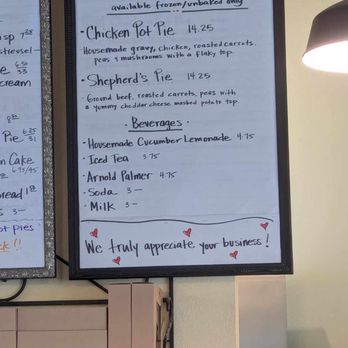 available frozen/unbaked only
• Chicken Pot Pie 14.25
Housemade gravy, chicken, roasted carrots,
peas & mushrooms with a flaky top.
• Shepherd's Pie 14.25
• Ground beef, roasted carrots, peas with
a yummy cheddar cheese mashed potato top.
• Beverages •
• Housemade Cucumber Lemonade 4.75
• Iced Tea 3.75
• Arnold Palmer 4.75
• Soda 3—
• Milk 3—
We truly appreciate your business!
isp 7
cream
Pie 6.25
31
n Cake
read
ot pies
!!